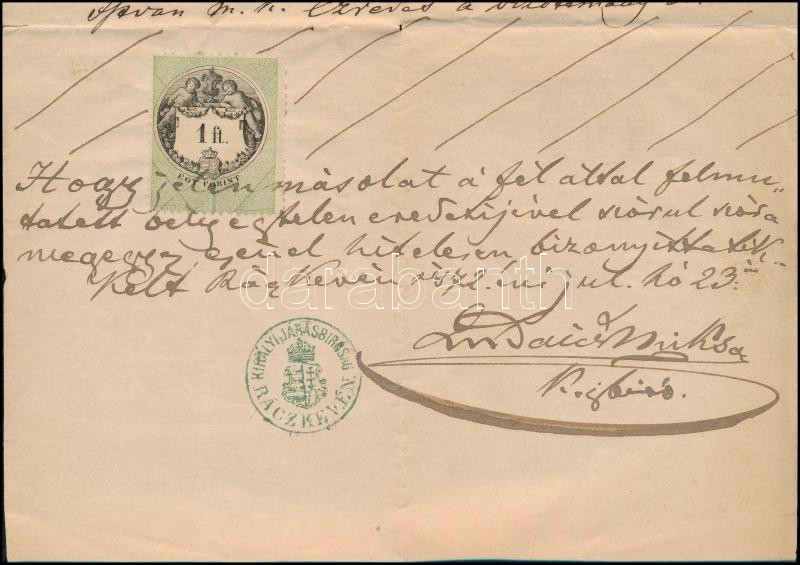 István m. k. Ezredes a
1 ft.
EGY FORINT
Hogy jelen másolat a fél által felmu-
tatott bélyegtelen eredetijével szórul szóra
megegyez, ezzel hitelesen bizonyittatik.
Kelt Ráczkevén 1872. évi jul. hó 23.án
KIRÁLYI JÁRÁSBIRÓSÁG
RÁCZKEVÉN
Miksa
K. jbiró.
darabanth